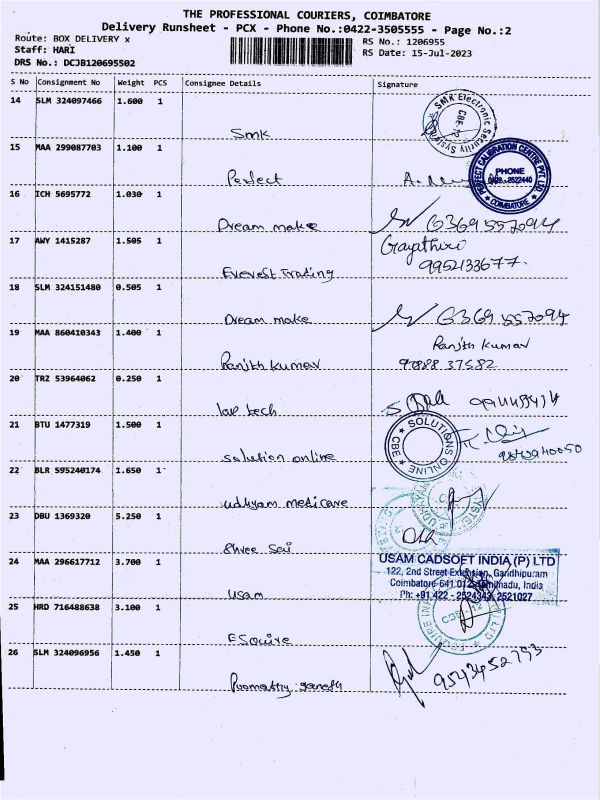 THE PROFESSIONAL COURIERS, COIMBATORE
Delivery Runsheet - PCX - Phone No.:0422-3505555 - Page No.:2
Route: BOX DELIVERY x
RS No.: 1206955
Staff: HARI
RS Date: 15-Jul-2023
DRS No.: DCJB120695502
S No Consignment No Weight PCS Consignee Details Signature
14 SLM 324097466 1.600 1
Smk
SMK Electronic Security Systems
CBE-12
15 MAA 299087703 1.100 1
Perfect
PERFECT CALIBRATION CENTRE PVT. LTD.
PHONE
COIMBATORE
16 ICH 5695772 1.030 1
Dream make
17 AWY 1415287 1.505 1
Everest Trading
Gayathiri
9952133677.
18 SLM 324151480 0.505 1
Dream make
19 MAA 860410343 1.400 1
Ranjith Kumar
Ranjith Kumar
97888 37582
20 TRZ 53964062 0.250 1
tech
21 BTU 1477319 1.500 1
solution online
SOLUTIONS ONLINE
CBE
22 BLR 595240174 1.650 1
udhyam medicare
23 DBU 1369320 5.250 1
Shree Sai
24 MAA 296617712 3.700 1
usam
USAM CADSOFT INDIA (P) LTD
122, 2nd Street Extension, Gandhipuram
Coimbatore-641 012, Tamilnadu, India
Ph: +91 422 - 2524343, 2521027
25 HRD 716488638 3.100 1
ESquire
26 SLM 324096956 1.450 1
ganesh
9543452793